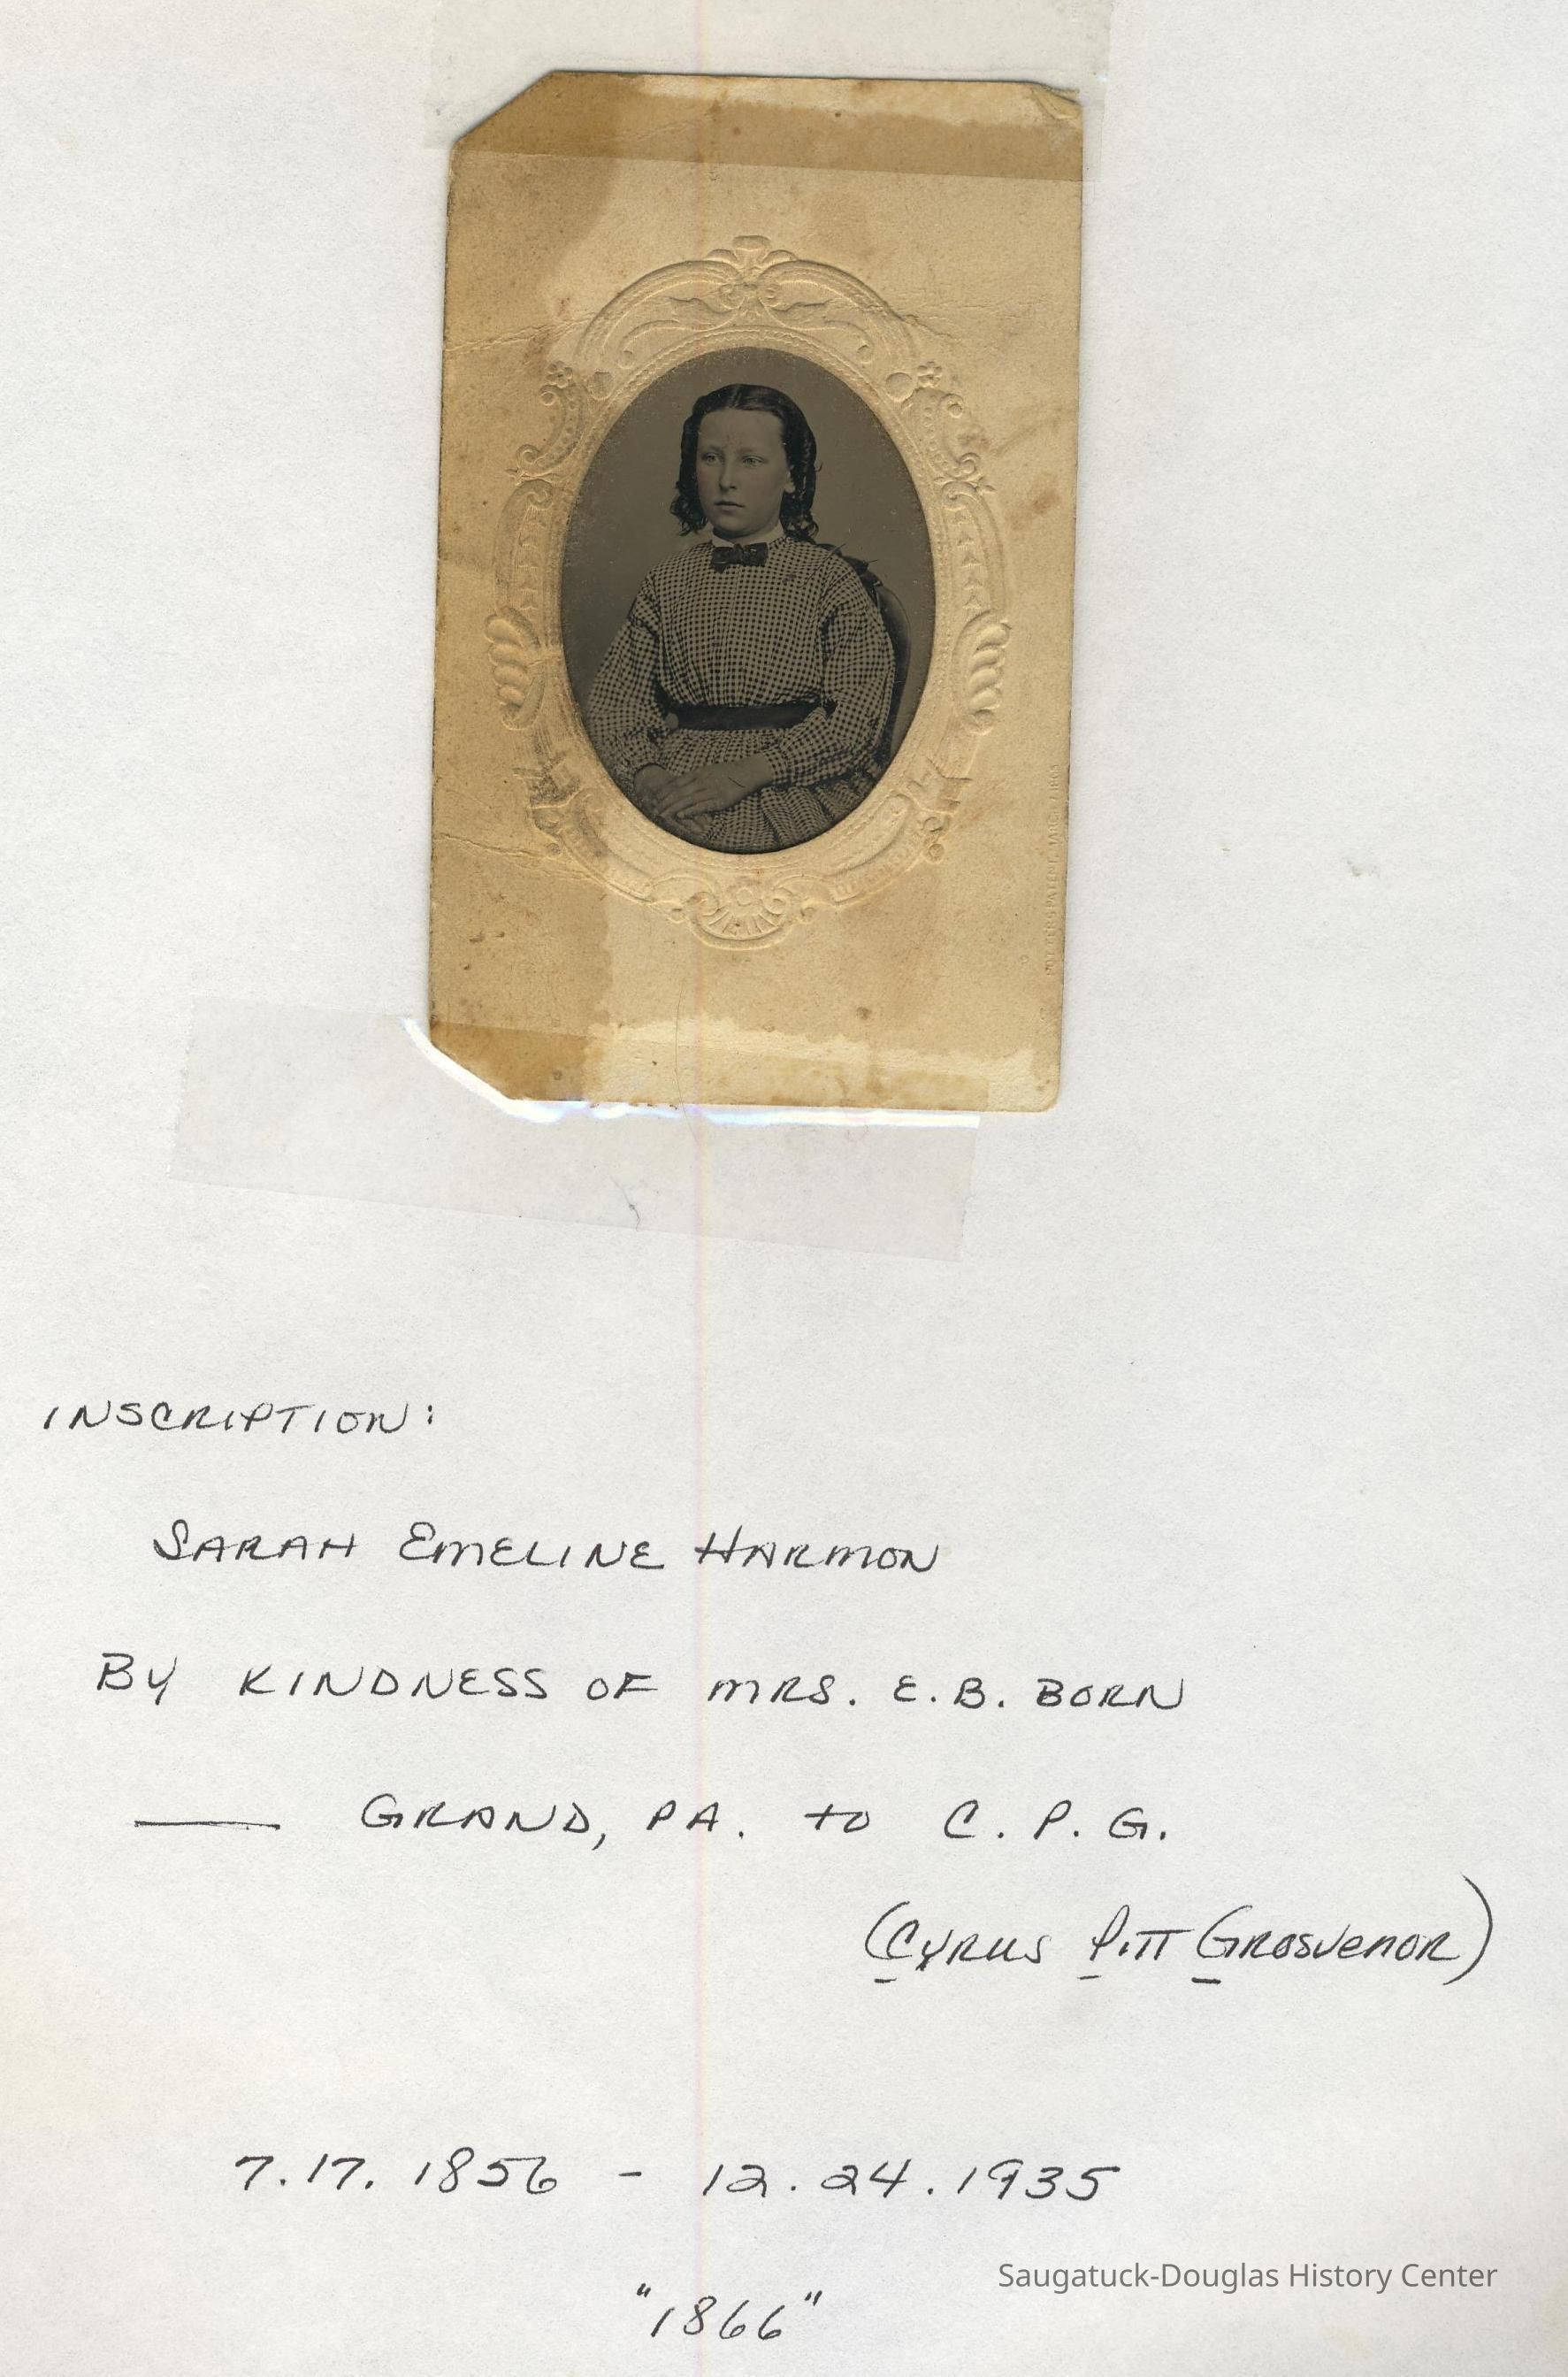 POTTER'S PATENT MARCH 7 1865
INSCRIPTION:
SARAH EMELINE HARMON
BY KINDNESS OF MRS. E.B. BORN
—— GRAND, PA. to C. P. G.
(CYRUS PITT GROSVENOR)
7.17.1856 - 12.24.1935
"1866"
Saugatuck-Douglas History Center